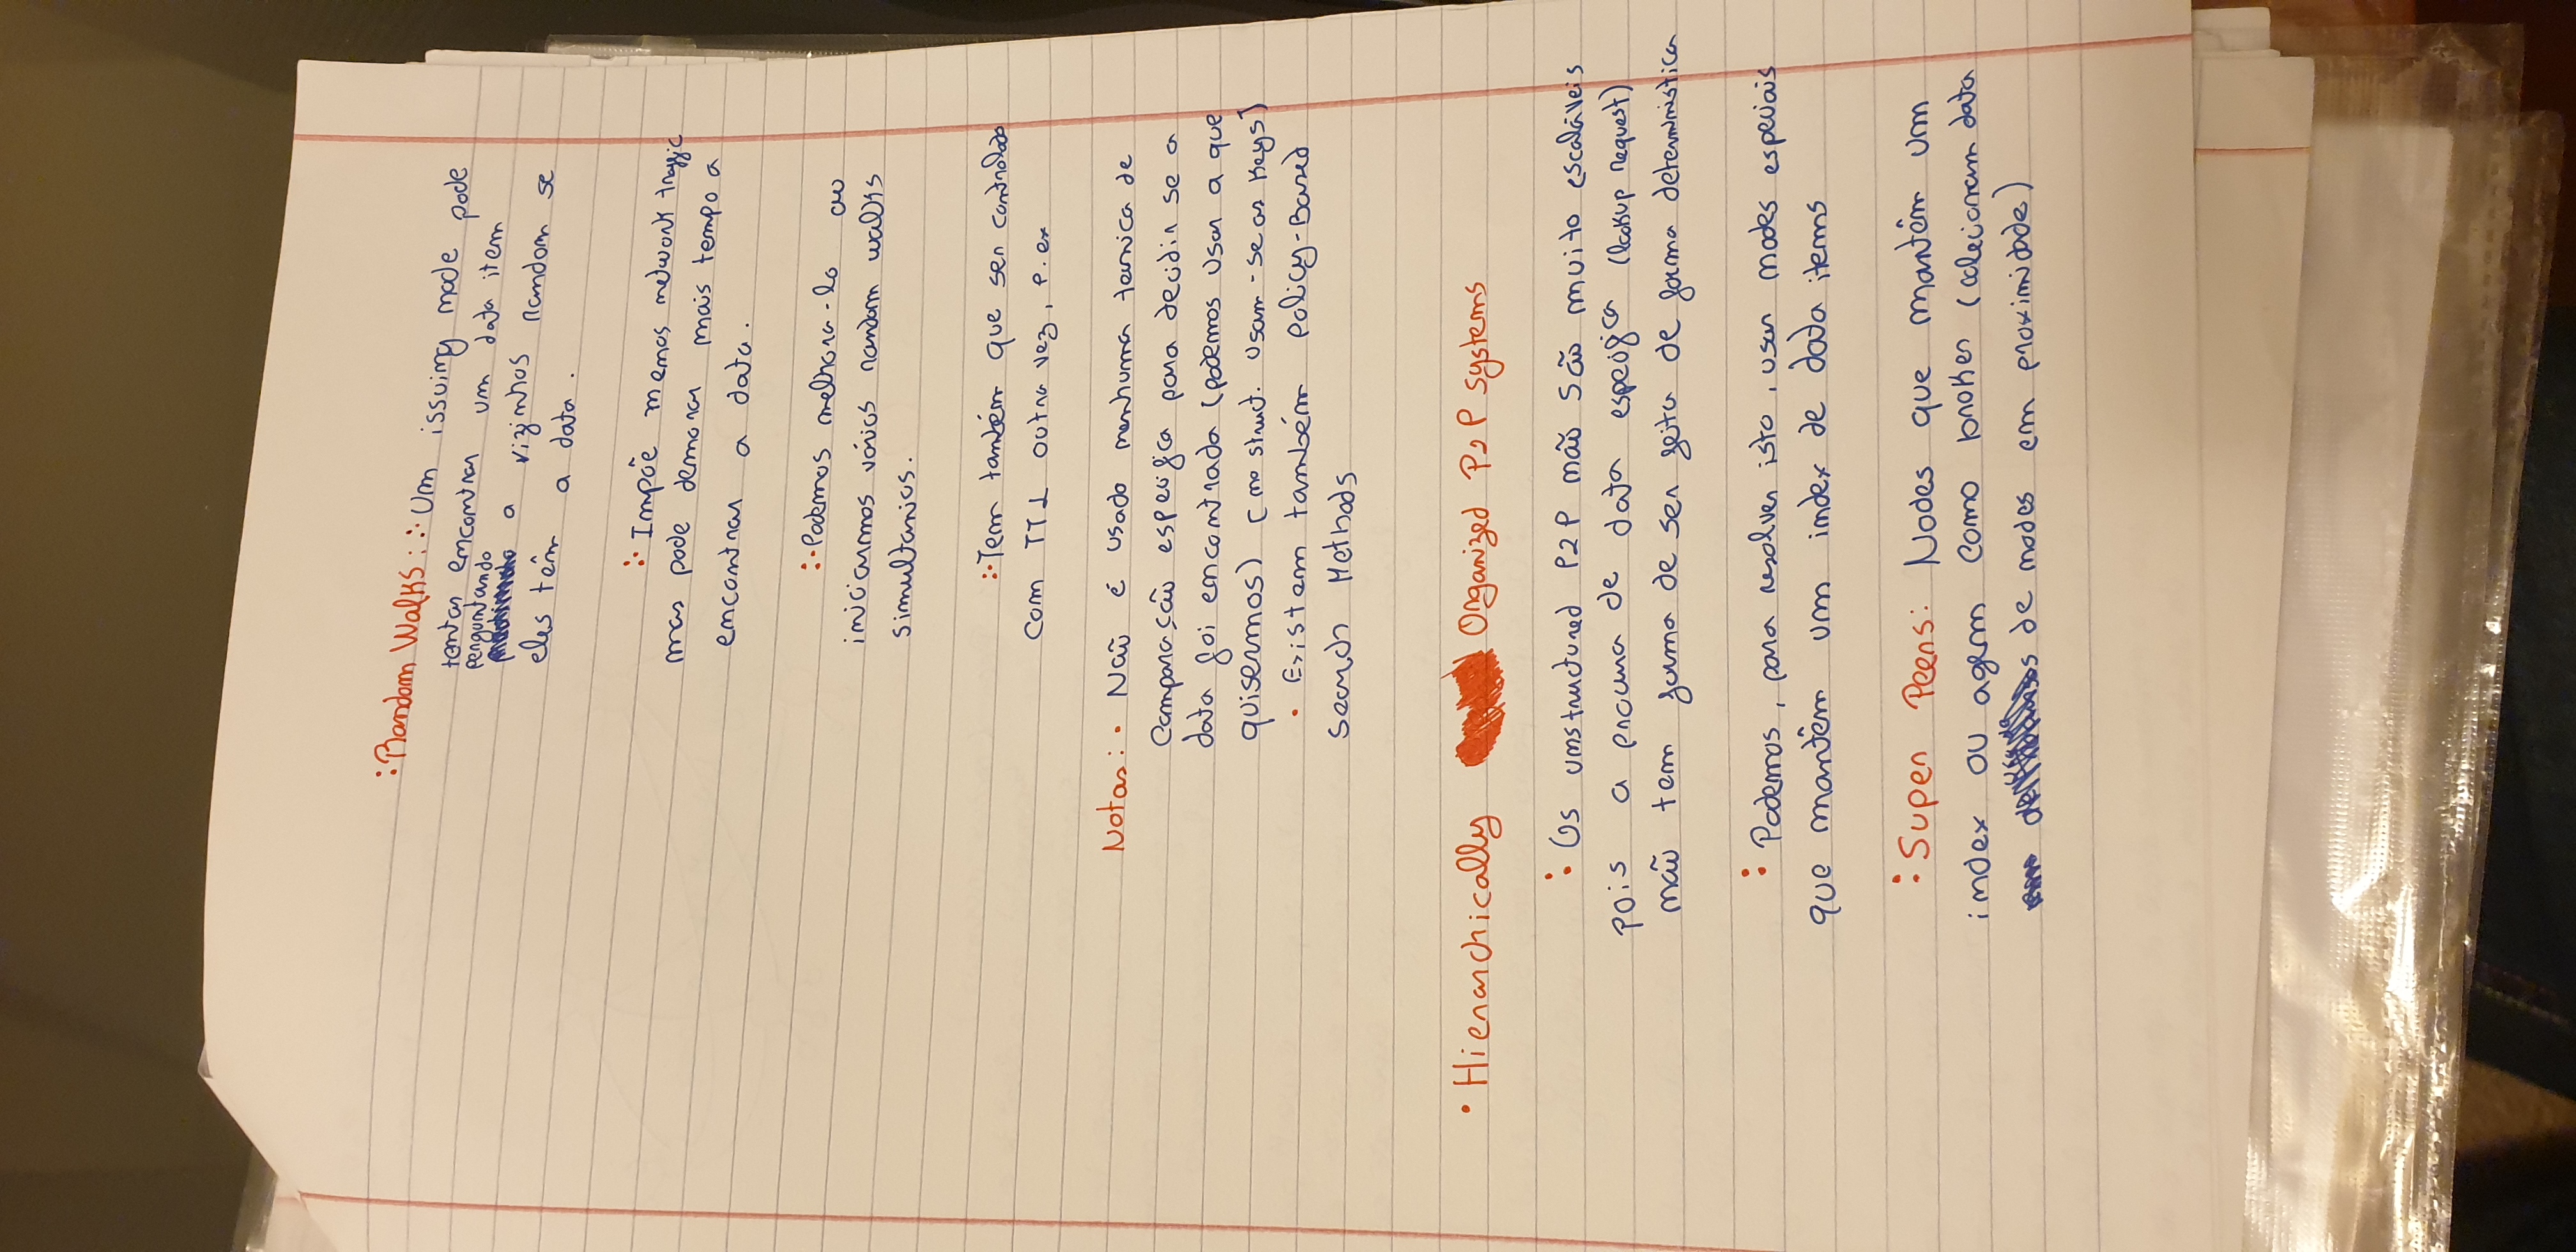 : Random Walks: ∴ Um issuing node pode
tentar encontrar um data item
perguntando
a vizinhos random se
eles têm a data.
∴ Impõe menos network traffic
mas pode demorar mais tempo a
encontrar a data.
∴ Podemos melhora-lo ao
iniciarmos vários random walks
simultanios.
∴ Tem também que ser controlado
com TTL outra vez, p. ex
Notas: • Não é usado nenhuma tecnica de
comparação especifica para decidir se a
data foi encontrada (podemos usar a que
quisermos) (no struct. usam-se as keys)
• Existem também Policy-Based
Search Methods
• Hierarchically Organized P2P systems
: Os unstructured P2P não são muito escaláveis
pois a procura de data especifica (lookup request)
não tem forma de ser feita de forma deterministica
: Podemos, para resolver isto, usar nodes especiais
que mantêm um index de data items
: Super Peers: Nodes que mantêm um
index ou agem como broker (colecionam data
de nodes em proximidade)